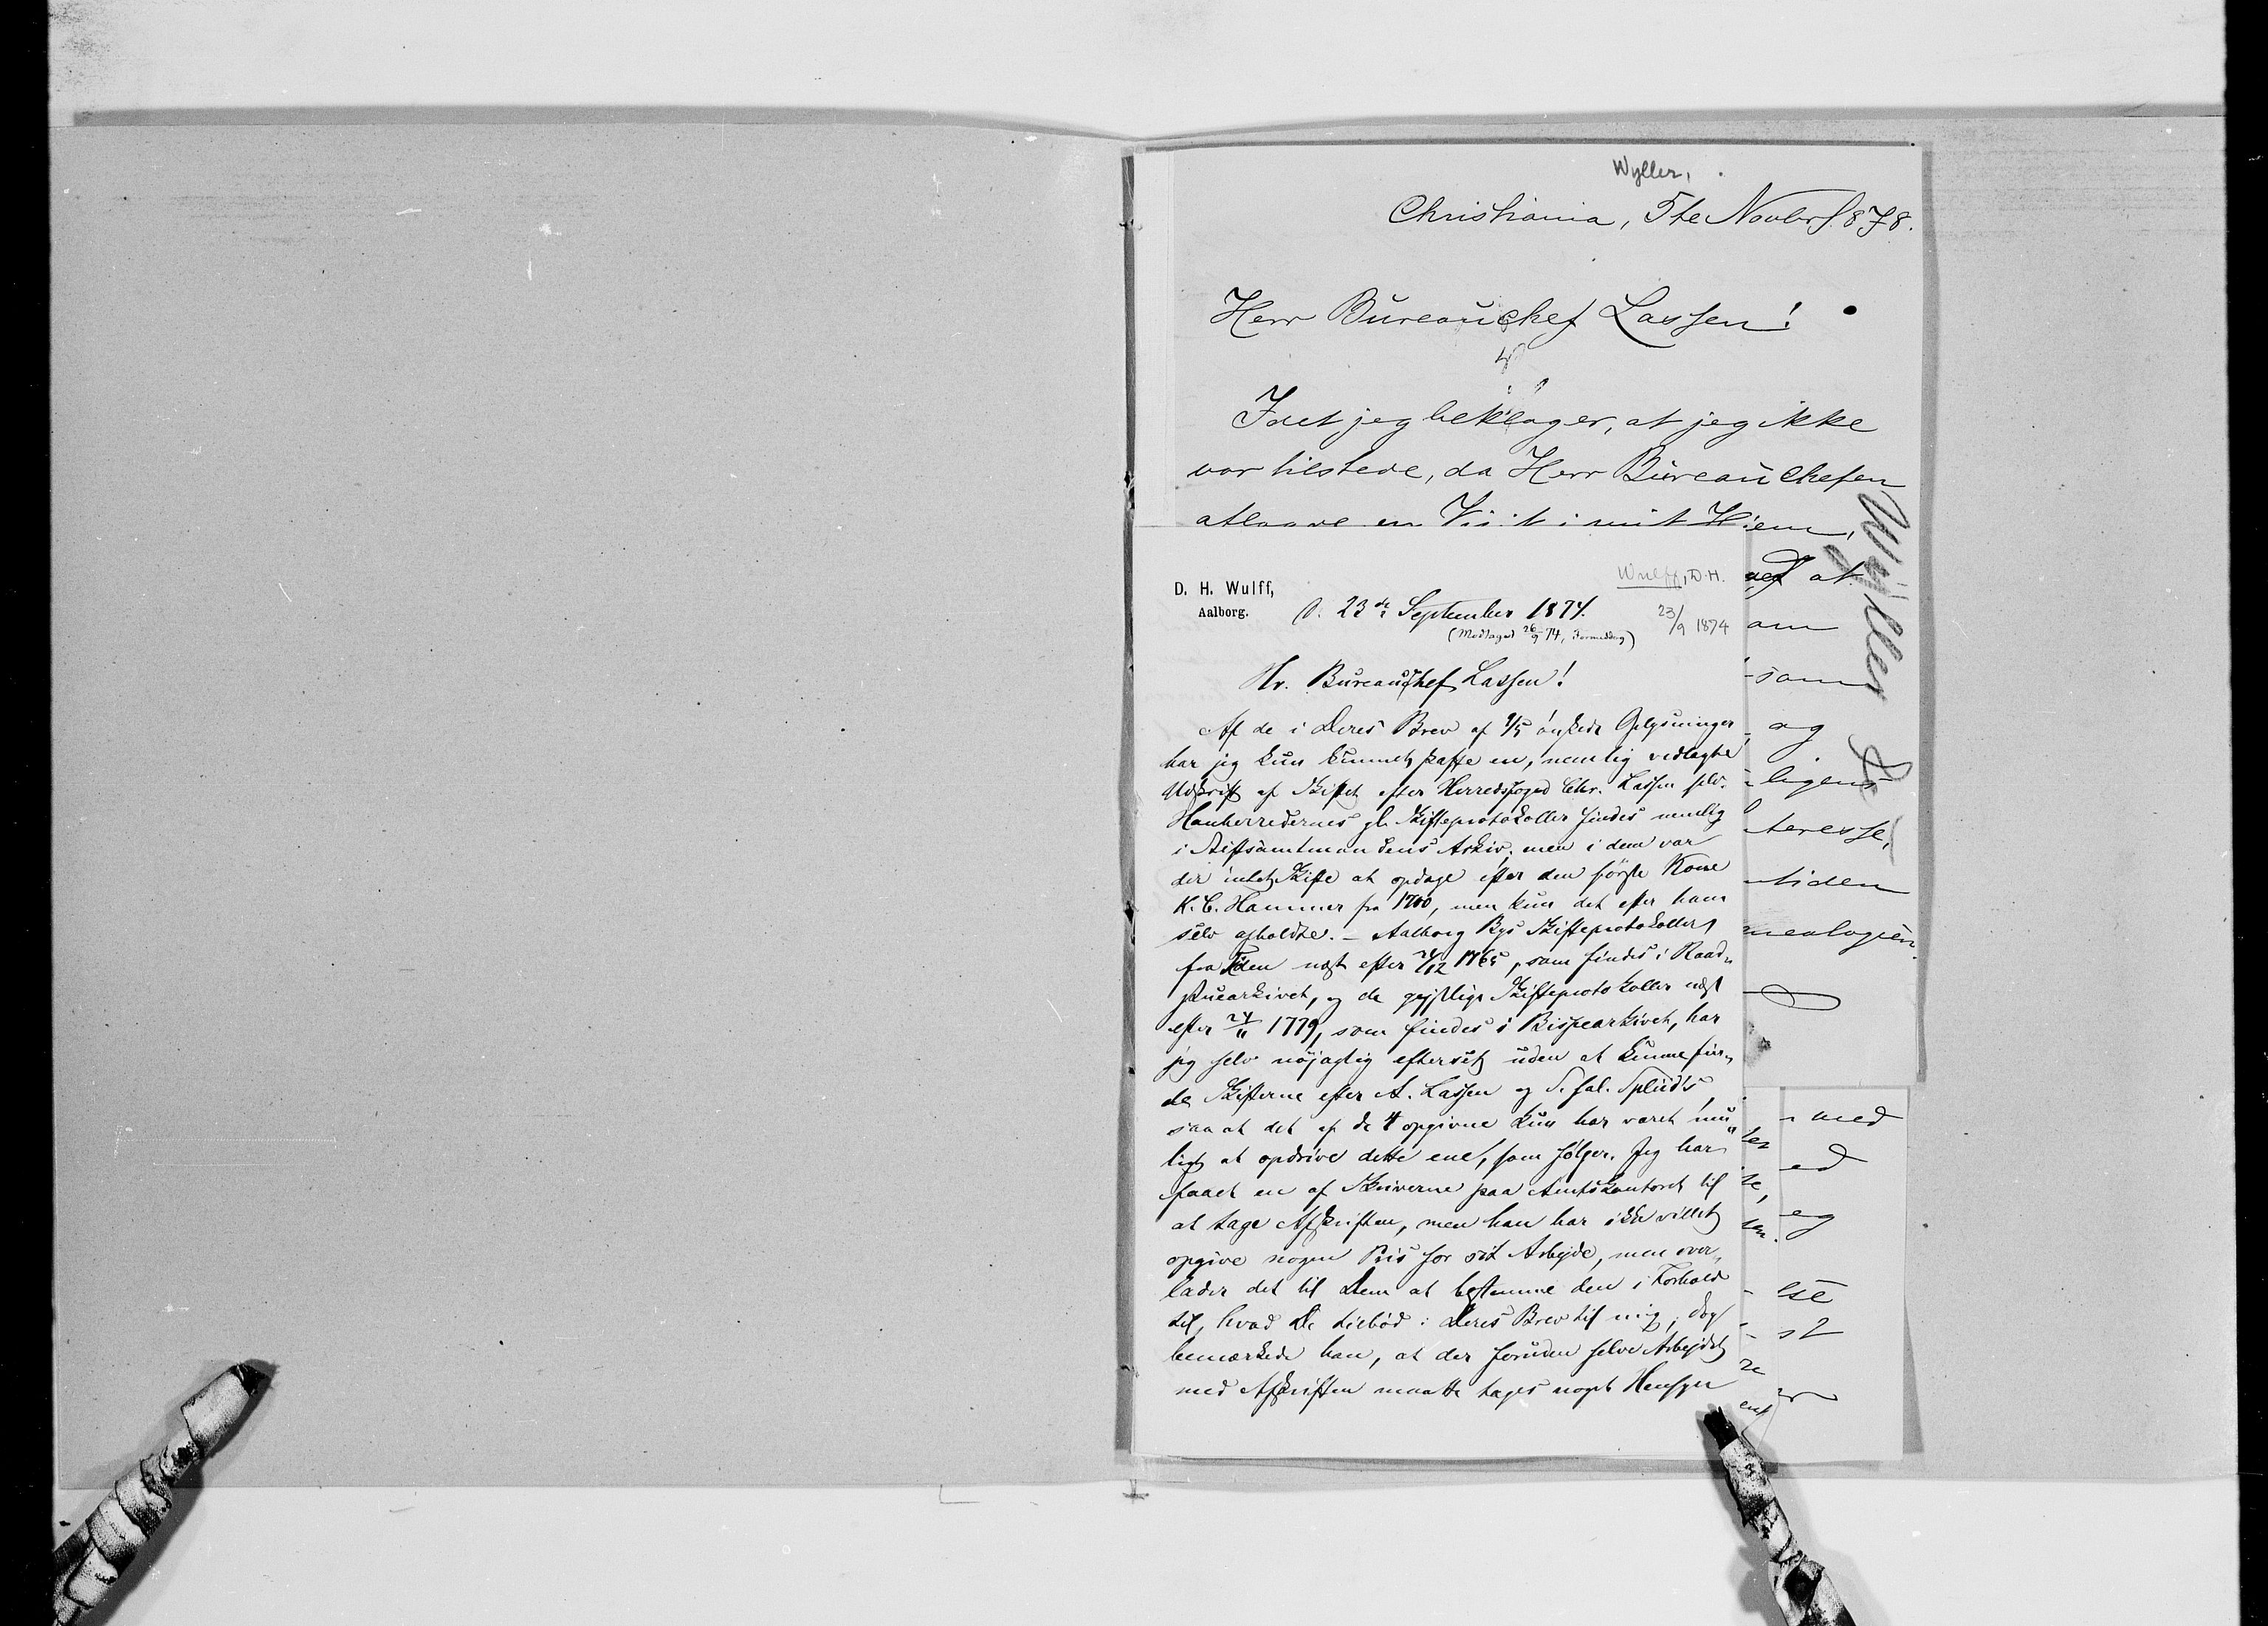 Wyller,
Christiania, 5te Novbr 1878.
Herr Bureauchef Lassen!
Idet jeg beklager, at jeg ikke
var tilstede, da Herr Bureauchefen
aflagde en Visit i mit Hjem,
Wyller
D. H. Wulff,
Aalborg.
Wulff, D. H.
23/9 1874
d. 23de September 1874.
(Modtaget 26/9 74, Formiddag)
Hr. Bureauchef Lassen!
Af de i Deres Brev af 9/5 önskede Oplysninger
har jeg kun kunnet skaffe en, nemlig vedlagte
Udskrift af Skiftet efter Herredsfoged Chr. Lassen selv.
Hanherredernes gl. Skifteprotokoller findes nemlig
i Stiftsamtmandens Arkiv; men i dem var
der intet Skifte at opdage efter den förste Kone
K. C. Hammer fra 1700, men kun det efter ham
selv afholdte. – Aalborg Bys Skifteprotokoller
fra Tiden næst efter 24/12 1765, som findes i Raad-
stuearkivet, og de gejstlige Skifteprotokoller næst
efter 24/11 1779, som findes i Bispearkivet, har
jeg selv nöjagtig efterset uden at kunne fin-
de Skifterne efter A. Lassen og S. sal. Spliids,
saa at det af de 4 opgivne kun har været mu-
ligt at opdrive dette ene, som følger. Jeg har
faaet en af Skriverne paa Amtskontoret til
at tage Afskriften, men han har ikke villet
opgive nogen Pris for sit Arbejde, men over-
lader det til Dem at bestemme den i Forhold
til, hvad De tilböd i Deres Brev til mig; dog
bemærkede han, at der foruden selve Arbejdet
med Afskriften maatte tages noget Hensyn
at
om
som
og
ligens
teresse,
tiden
nealogien.
med
ed
eg
lse
st
er